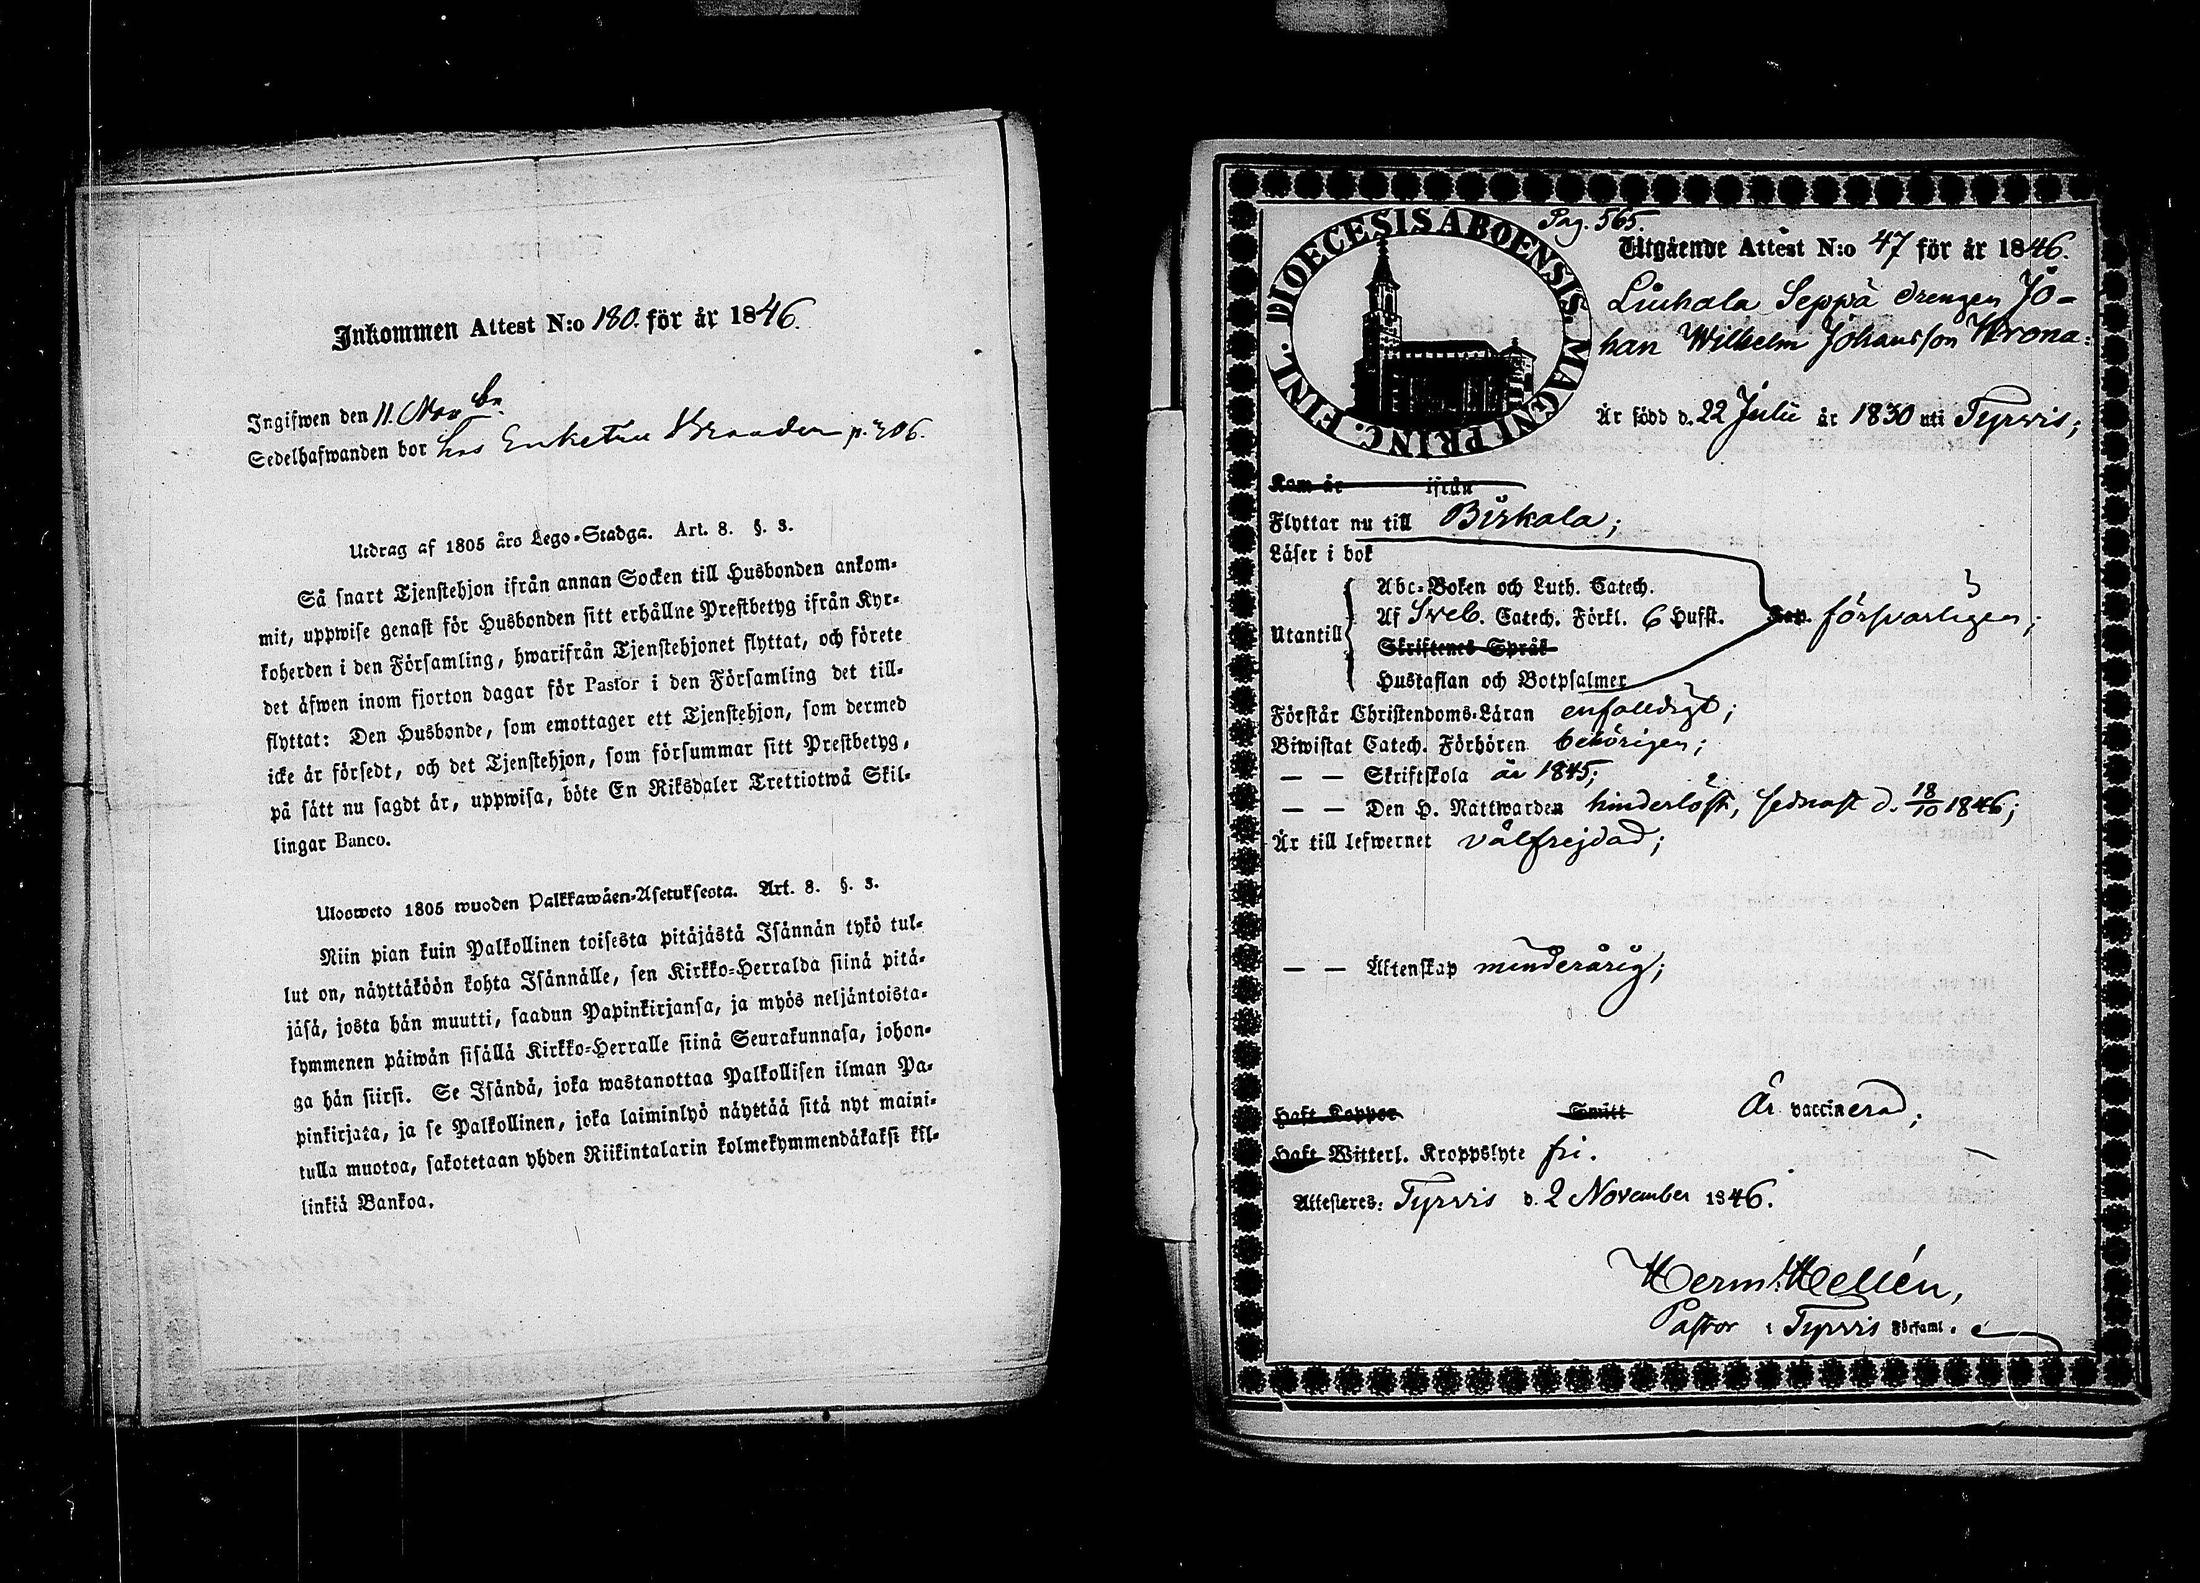 Inkommen Attest N:o 180. för år 1846.
Ingifwen den 11. Novbr.
Sedelhafwanden bor hos Enkefru p. 206.
Utdrag af 1805 års Lego-Stadga. Art. 8. §. 3.
Så snart Tjenstehjon ifrån annan Socken till Husbonden ankom-
mit, uppwise genast för Husbonden sitt erhållne Prestbetyg ifrån Kyr-
koherden i den Församling, hwarifrån Tjenstehjonet flyttat, och förete
det äfwen inom fjorton dagar för Pastor i den Församling det till-
flyttat: Den Husbonde, som emottager ett Tjenstehjon, som dermed
icke är försedt, och det Tjenstehjon, som försummar sitt Prestbetyg,
på sätt nu sagdt är, uppwisa, böte En Riksdaler Trettiotwå Skil-
lingar Banco.
Ulosweto 1805 wuoden Palkkawäen-Asetuksesta. Art. 8. §. 3.
Niin pian kuin Palkollinen toisesta pitäjästä Isännän tykö tul-
lut on, näyttäköön kohta Isännälle, sen Kirkko-Herralda siinä pitä-
jäsä, josta hän muutti, saadun Papinkirjansa, ja myös neljäntoista-
kymmenen päiwän sisällä Kirkko-Herralle siinä Seurakunnasa, johon-
ga hän siirsi. Se Isändä, joka wastanottaa Palkollisen ilman Pa-
pinkirjata, ja se Palkollinen, joka laiminlyö näyttää sitä nyt maini-
tulla muotoa, sakotetaan yhden Riikintalarin kolmekymmendäkaksi kil-
linkiä Bankoa.
DIOECESIS ABOENSIS. MAGNI PRINC. FINL.
Pag. 565.
Utgående Attest N:o 47 för år 1846.
Liuhala Seppä drengen Jo-
han Wilhelm Johansson Krona:
Är född d. 22 Julii år 1830 uti Tyrvis;
Kom år ifrån
Flyttar nu till Birkala;
Läser i bok
Abc-Boken och Luth. Catech.
Utantill Af Sveb. Catech. Förkl. 6 Hufst. Cap. försvarligen;
Skriftenes Språk
Hustaflan och Botpsalmer
Förstår Christendoms-Läran enfaldigt;
Biwistat Catech. Förhören behörigen;
— — Skriftskola år 1845;
— — Den H. Nattwarden hinderlöst, sednast d. 18/10 1846;
Är till lefwernet välfrejdad;
— — Äktenskap minderårig;
Haft Koppor Smitt Är vaccinerad;
Haft Witterl. Kroppslyte fri.
Attesteres: Tyrvis d. 2 November 1846.
Herm. Hellén,
Pastor i Tyrvis Församl.